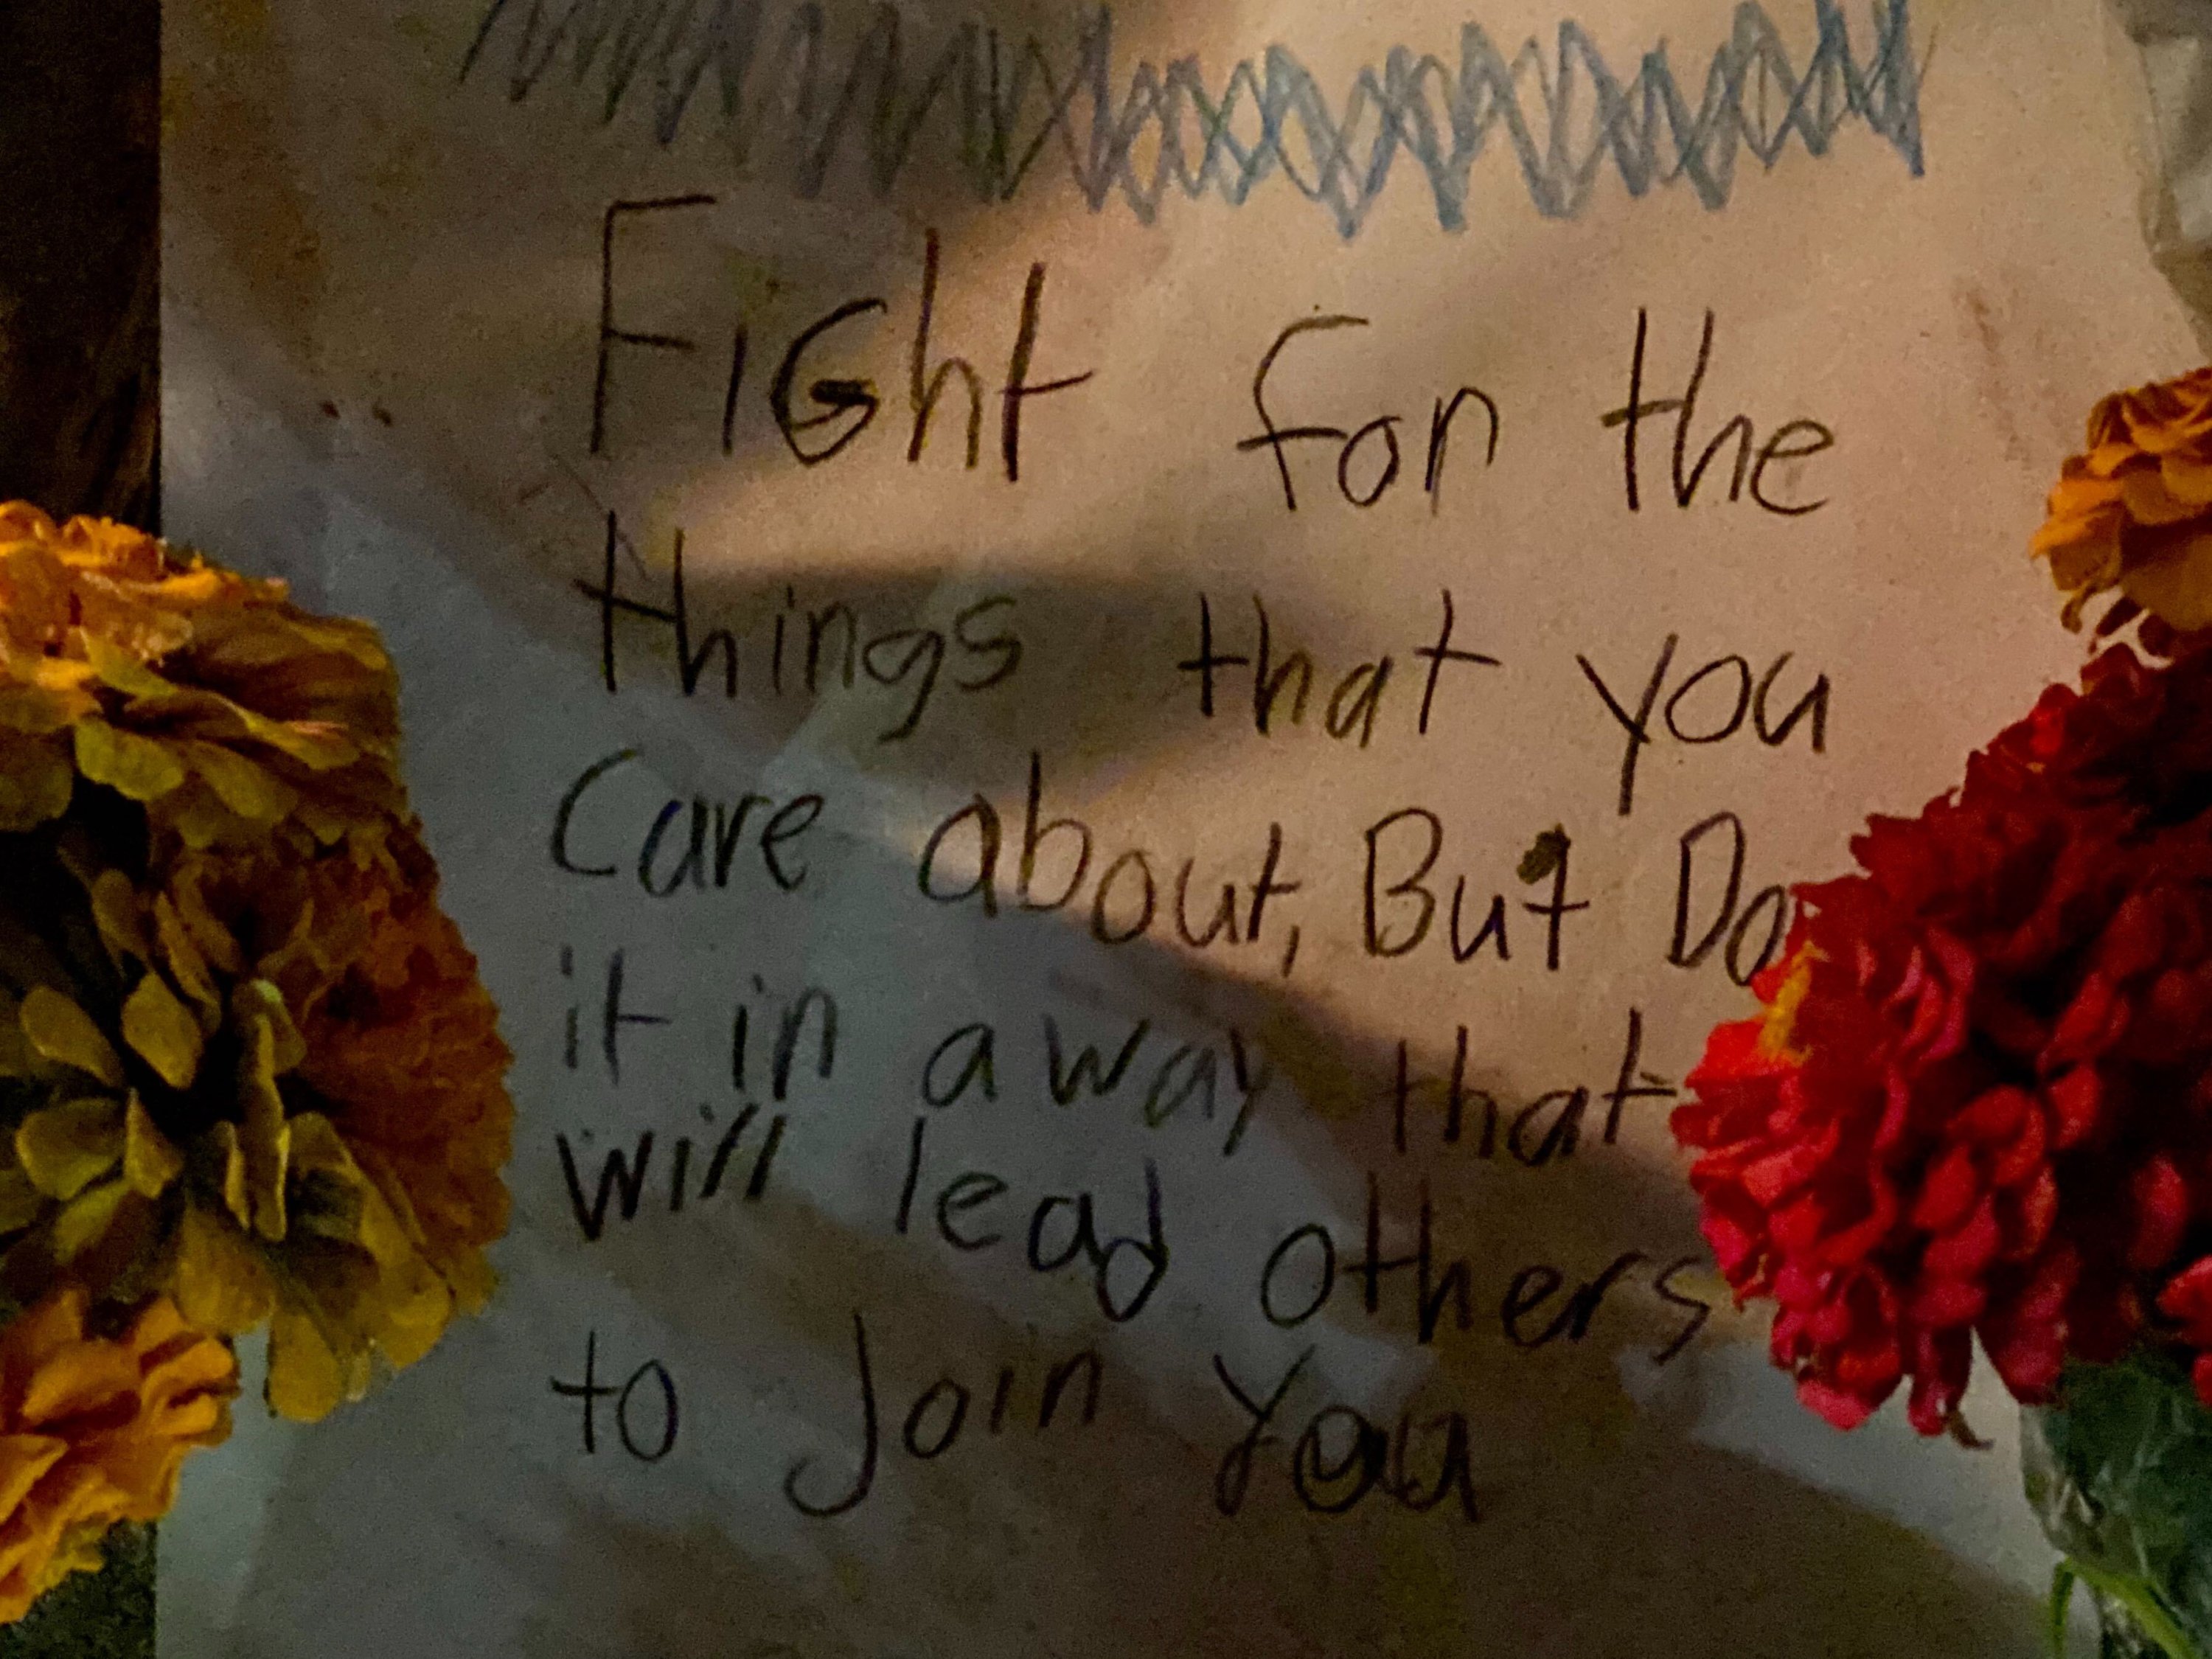 FiGht for the
things that you
Care about, But Do
it in a way that
will lead others
to Join you